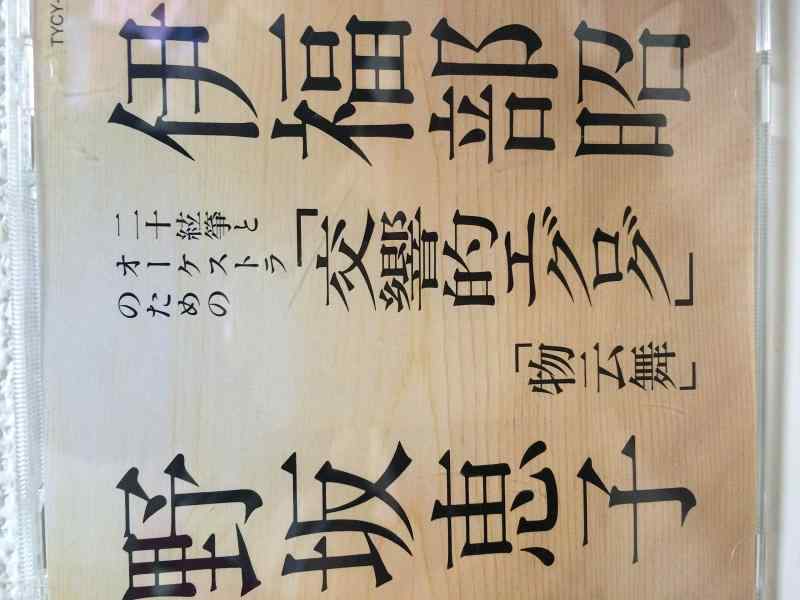 TYCY-
伊福部昭
二十絃箏と
オーケストラ
のための
「交響的エグログ」
「物云舞」
野坂恵子